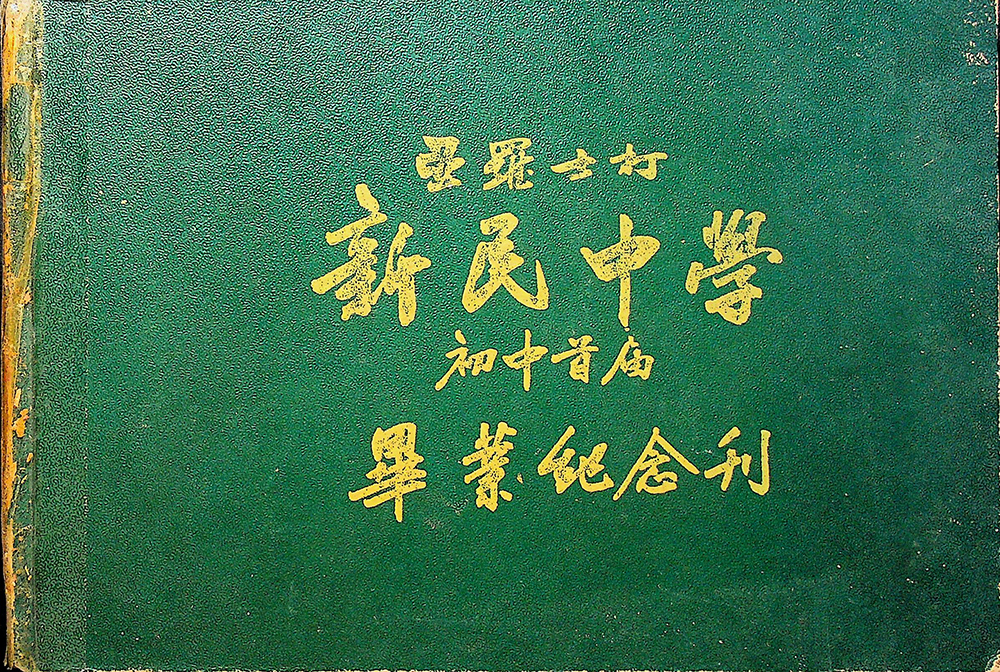 亞羅士打
新民中學
初中首届
畢業紀念刊